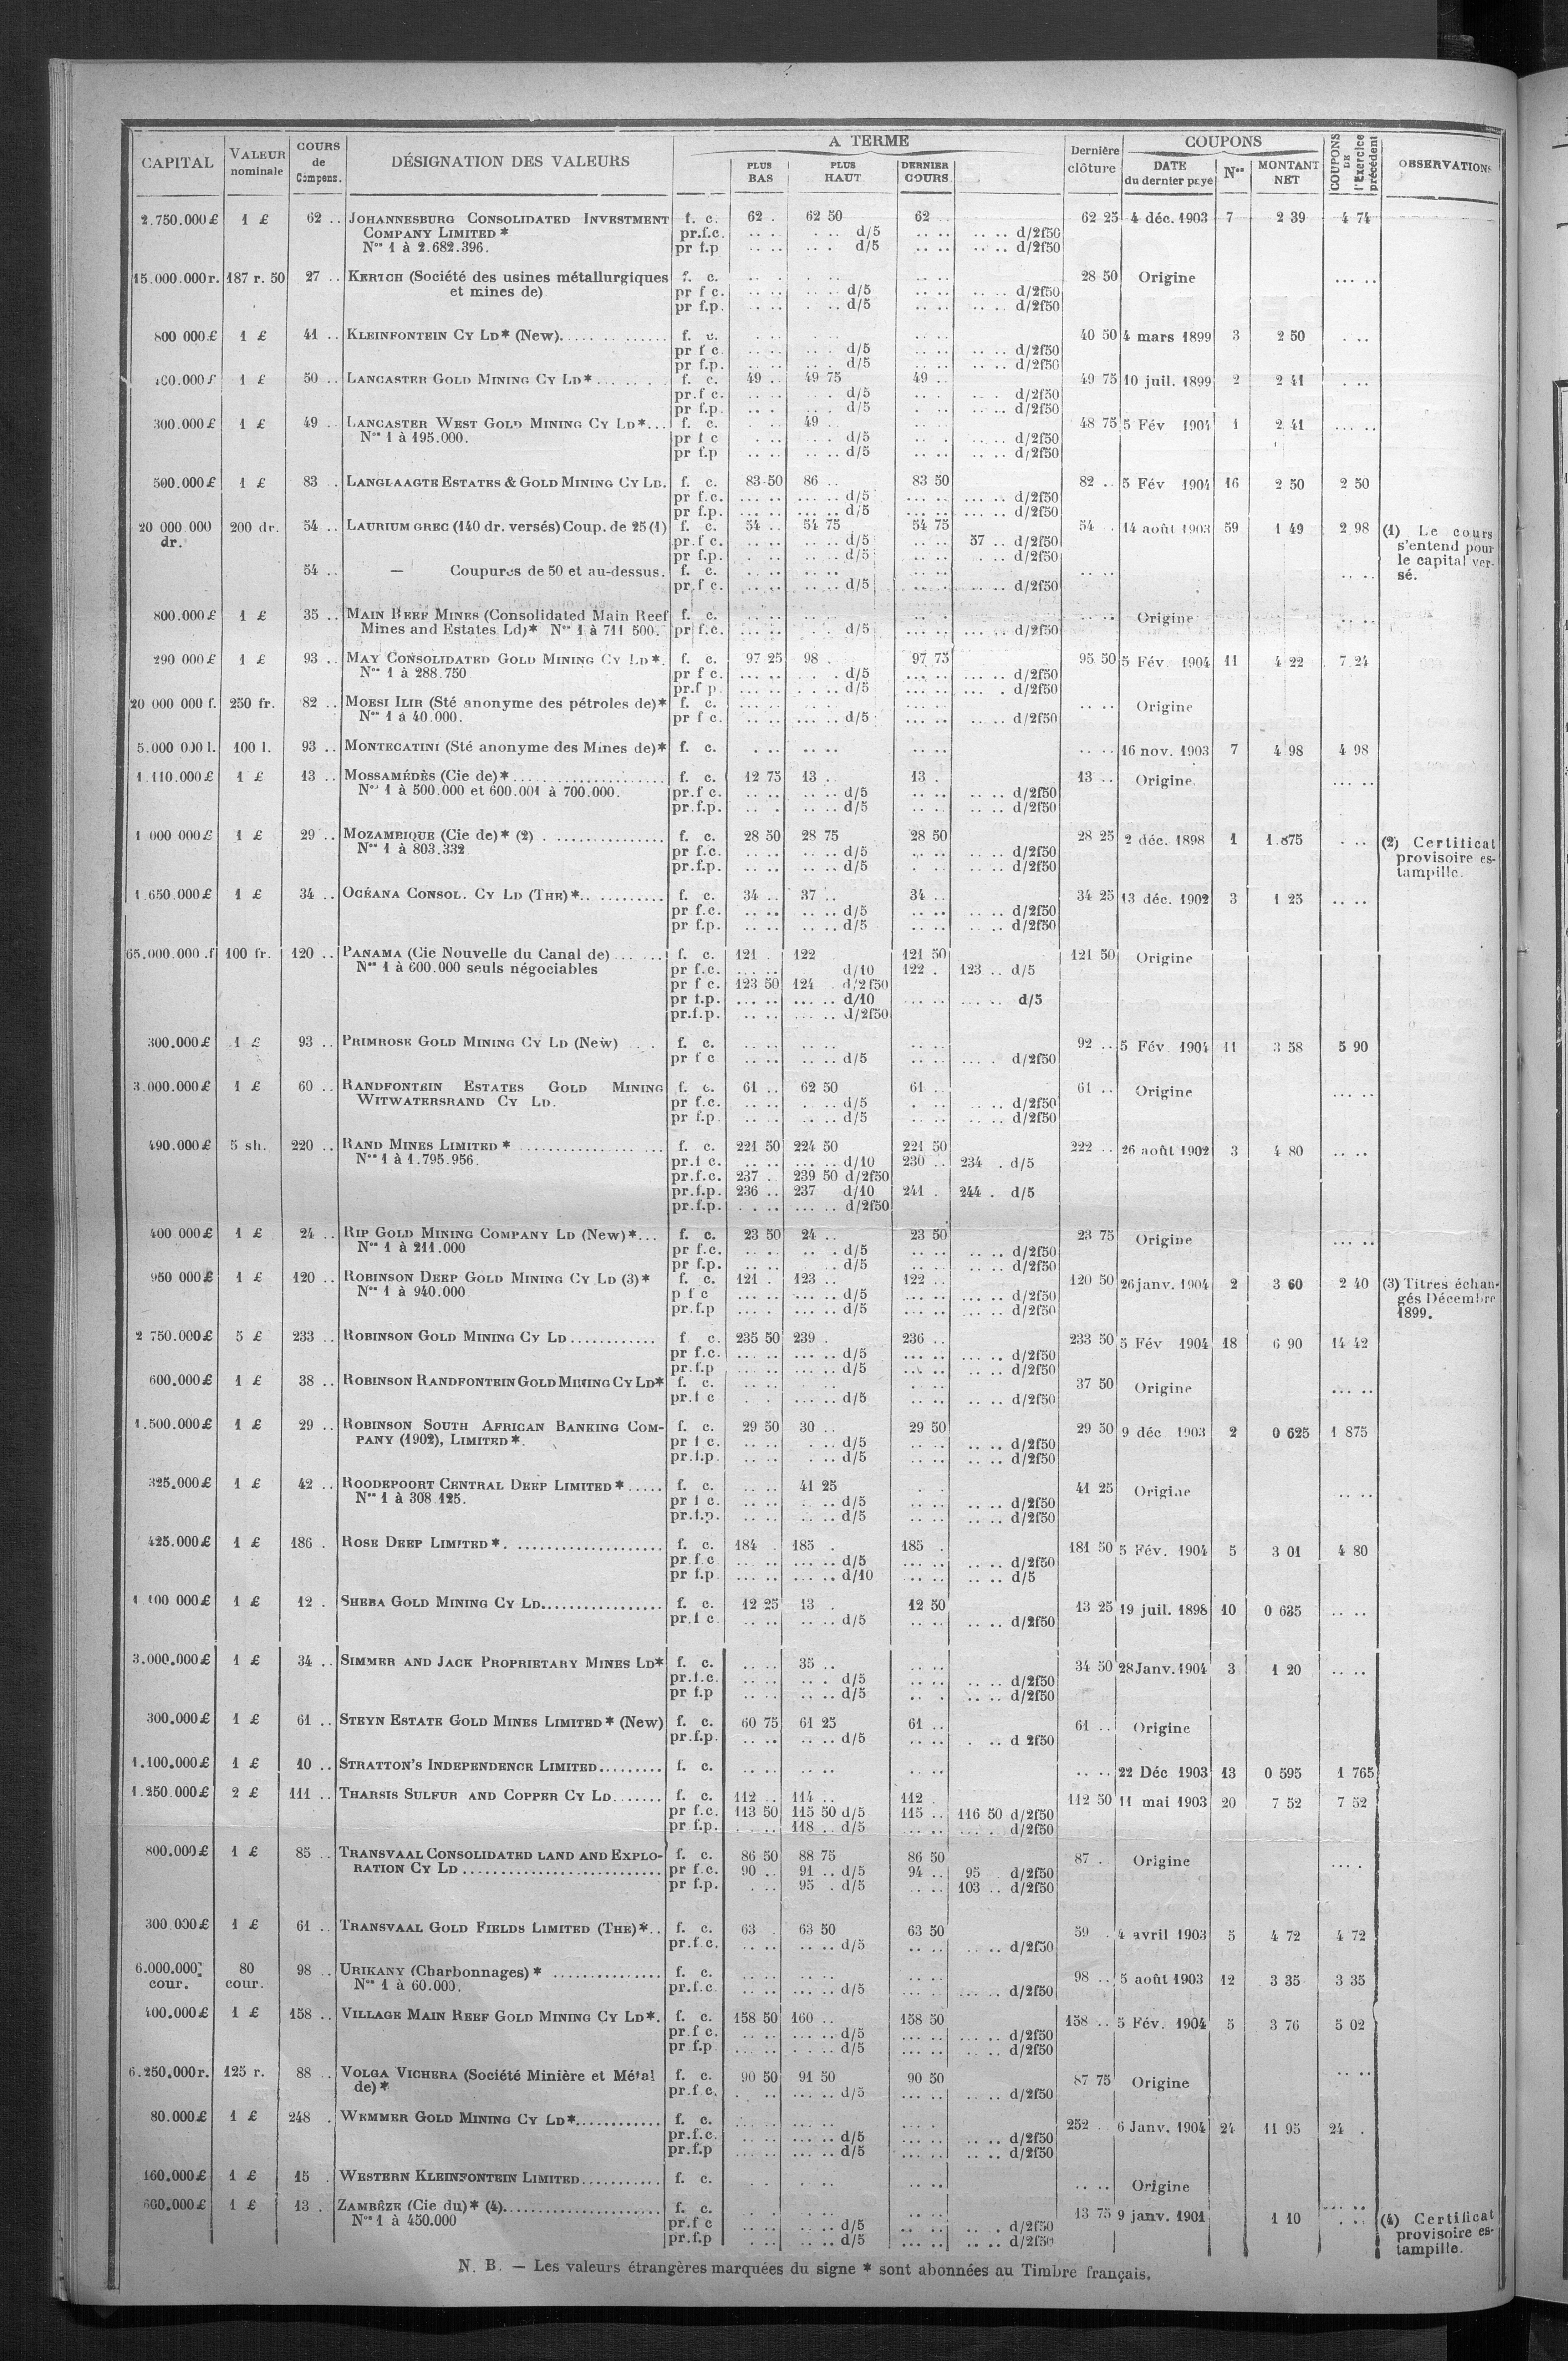 CAPITAL VALEUR nominale COURS de Compens. DÉSIGNATION DES VALEURS A TERME PLUS BAS PLUS HAUT DERNIER COURS Dernière clôture COUPONS DATE du dernier payé Nos MONTANT NET COUPONS DE l'Exercice précédent OBSERVATIONS
2.750.000 £ 1 £ 62 .. JOHANNESBURG CONSOLIDATED INVESTMENT f. c. 62 . 62 50 62 .. 62 25 4 déc. 1903 7 2 39 4 74
COMPANY LIMITED * pr.f.c. .. .. . .. d/5 .. .. .. .. d/2f50
Nos 1 à 2.682.396. pr f.p .. .. . .. d/5 .. .. .. .. d/2f50
15.000.000 r. 187 r. 50 27 .. KERTCH (Société des usines métallurgiques f. c. 28 50 Origine
et mines de) pr f c. .. .. d/5 .. .. d/2f50
pr f.p. .. .. d/5 .. .. d/2f50
800 000 £ 1 £ 41 .. KLEINFONTEIN CY LD * (New). f. c. 40 50 4 mars 1899 3 2 50
pr f c. .. .. d/5 .. .. d/2f50
pr f.p. .. .. d/5 .. .. d/2f50
1 £ 50 .. LANCASTER GOLD MINING CY LD * f. c. 49 .. 49 75 49 .. 49 75 10 juil. 1899 2 2 41
pr.f c. .. .. d/5 d/2f50
pr f.p. .. .. d/5 d/2f50
300.000 £ 1 £ 49 .. LANCASTER WEST GOLD MINING CY LD *... f. c. 49 .. 48 75 5 Fév 1904 1 2 41
Nos 1 à 195.000. pr f c .. .. d/5 .. .. d/2f50
pr f.p .. .. d/5 .. .. d/2f50
500.000 £ 1 £ 83 .. LANGLAAGTE ESTATES & GOLD MINING CY LD. f. c. 83 50 86 .. 83 50 82 .. 5 Fév 1904 16 2 50 2 50
pr f.c. .. .. d/5 .. .. d/2f50
pr f.p. .. .. d/5 .. .. d/2f50
20 000 000 dr. 200 dr. 54 .. LAURIUM GREC (140 dr. versés) Coup. de 25 (1) f. c. 54 .. 54 75 54 75 54 .. 14 août 1903 59 1 49 2 98 (1) Le cours s'entend pour le capital versé.
pr.f c. .. .. d/5 57 .. d/2f50
pr f.p. .. .. d/5 .. .. d/2f50
54 .. — Coupures de 50 et au-dessus. f. c.
pr.f c. .. .. d/5 .. .. d/2f50
800.000 £ 1 £ 35 .. MAIN REEF MINES (Consolidated Main Reef f. c. Origine
Mines and Estates Ld) * Nos 1 à 711 500. pr f.c. d/5 d/2f50
290 000 £ 1 £ 93 .. MAY CONSOLIDATED GOLD MINING CY LD *. f. c. 97 25 98 . 97 75 95 50 5 Fév. 1904 11 4 22 7 24
Nos 1 à 288.750 pr f c. d/5 d/2f50
pr.f p. d/5 d/2f50
20 000 000 f. 250 fr. 82 .. MOESI ILIR (Sté anonyme des pétroles de) * f. c. Origine
Nos 1 à 40.000. pr f c. d/5 d/2f50
5.000 000 l. 100 l. 93 .. MONTECATINI (Sté anonyme des Mines de) * f. c. 16 nov. 1903 7 4 98 4 98
1.110.000 £ 1 £ 13 .. MOSSAMÉDÈS (Cie de) * f. c. 12 75 13 . 13 . 13 .. Origine
Nos 1 à 500.000 et 600.001 à 700.000. pr.f c. d/5 d/2f50
pr.f.p. d/5 d/2f50
1 000 000 £ 1 £ 29 .. MOZAMBIQUE (Cie de) * (2) f. c. 28 50 28 75 28 50 28 25 2 déc. 1898 1 1.875 (2) Certificat provisoire estampille.
Nos 1 à 803.332 pr f.c. d/5 d/2f50
pr.f.p. d/5 d/2f50
1.650.000 £ 1 £ 34 .. OCÉANA CONSOL. CY LD (THE) *.. f. c. 34 .. 37 .. 34 .. 34 25 13 déc. 1902 3 1 25
pr f.c. d/5 d/2f50
pr f.p. d/5 d/2f50
65.000.000 .f 100 fr. 120 .. PANAMA (Cie Nouvelle du Canal de) f. c. 121 . 122 121 50 121 50 Origine
Nos 1 à 600.000 seuls négociables pr f.c. d/10 122 . 123 .. d/5
pr f c. 123 50 124 . d/2f50
pr f.p. d/10 d/5
pr.f.p. d/2f50
300.000 £ 1 £ 93 .. PRIMROSE GOLD MINING CY LD (New) f. c. 92 .. 5 Fév. 1904 11 3 58 5 90
pr f c d/5 d/2f50
3.000.000 £ 1 £ 60 .. RANDFONTEIN ESTATES GOLD MINING f. c. 61 .. 62 50 61 .. 61 .. Origine
WITWATERSRAND CY LD. pr f.c. d/5 d/2f50
pr f.p. d/5 d/2f50
490.000 £ 5 sh. 220 .. RAND MINES LIMITED * f. c. 221 50 224 50 221 50 222 .. 26 août 1902 3 4 80
Nos 1 à 1.795.956. pr.f c. d/10 230 .. 234 . d/5
pr.f.c. 237 . 239 50 d/2f50
pr.f.p. 236 .. 237 d/10 241 . 244 . d/5
pr.f.p. d/2f50
400 000 £ 1 £ 24 .. RIP GOLD MINING COMPANY LD (New) *... f. c. 23 50 24 .. 23 50 23 75 Origine
Nos 1 à 211.000 pr f.c. d/5 d/2f50
pr f.p. d/5 d/2f50
950 000 £ 1 £ 120 .. ROBINSON DEEP GOLD MINING CY LD (3) * f. c. 121 . 123 .. 122 .. 120 50 26 janv. 1904 2 3 60 2 40 (3) Titres échangés Décembre 1899.
Nos 1 à 940.000 p f c d/5 d/2f50
pr.f.p d/5 d/2f50
2 750.000 £ 5 £ 233 .. ROBINSON GOLD MINING CY LD f c. 235 50 239 . 236 .. 233 50 5 Fév 1904 18 6 90 14 42
pr f.c. d/5 d/2f50
pr.f.p d/5 d/2f50
600.000 £ 1 £ 38 .. ROBINSON RANDFONTEIN GOLD MINING CY LD * f. c. 37 50 Origine
pr.f c d/5 d/2f50
1.500.000 £ 1 £ 29 .. ROBINSON SOUTH AFRICAN BANKING COM- f. c. 29 50 30 .. 29 50 29 50 9 déc 1903 2 0 625 1 875
PANY (1902), LIMITED *. pr f c. d/5 d/2f50
pr.f.p. d/5 d/2f50
325.000 £ 1 £ 42 .. ROODEPOORT CENTRAL DEEP LIMITED * f. c. 41 25 41 25 Origine
Nos 1 à 308.125. pr f c. d/5 d/2f50
pr.f.p. d/5 d/2f50
425.000 £ 1 £ 186 . ROSE DEEP LIMITED *. f. c. 184 . 185 . 185 . 181 50 5 Fév. 1904 5 3 01 4 80
pr.f c d/5 d/2f50
pr f.p. d/10 d/5
1.100 000 £ 1 £ 12 . SHEBA GOLD MINING CY LD. f. c. 12 25 13 . 12 50 13 25 19 juil. 1898 10 0 635
pr.f c. d/5 d/2f50
3.000.000 £ 1 £ 34 .. SIMMER AND JACK PROPRIETARY MINES LD * f. c. 35 .. 34 50 28 Janv. 1904 3 1 20
pr.f.c. d/5 d/2f50
pr f.p d/5 d/2f50
300.000 £ 1 £ 61 .. STEYN ESTATE GOLD MINES LIMITED * (New) f. c. 60 75 61 25 61 .. 61 .. Origine
pr.f.p. d/5 d 2f50
1.100.000 £ 1 £ 10 .. STRATTON'S INDEPENDENCE LIMITED f. c. 22 Déc 1903 13 0 595 1 765
1.250.000 £ 2 £ 111 .. THARSIS SULFUR AND COPPER CY LD f. c. 112 .. 114 .. 112 . 112 50 11 mai 1903 20 7 52 7 52
pr f.c. 113 50 115 50 d/5 115 .. 116 50 d/2f50
pr f.p. 118 .. d/5 d/2f50
800.000 £ 1 £ 85 .. TRANSVAAL CONSOLIDATED LAND AND EXPLO- f. c. 86 50 88 75 86 50 87 .. Origine
RATION CY LD pr f.c. 90 .. 91 .. d/5 94 .. 95 d/2f50
pr f.p. 95 . d/5 103 .. d/2f50
300.000 £ 1 £ 61 .. TRANSVAAL GOLD FIELDS LIMITED (THE) *.. f. c. 63 63 50 63 50 59 . 4 avril 1903 5 4 72 4 72
pr.f.c. d/5 d/2f50
6.000.000 cour. 80 cour. 98 .. URIKANY (Charbonnages) * f. c. 98 .. 5 août 1903 12 3 35 3 35
Nos 1 à 60.000. pr.f.c. d/5 d/2f50
400.000 £ 1 £ 158 .. VILLAGE MAIN REEF GOLD MINING CY LD *. f. c. 158 50 160 .. 158 50 158 .. 5 Fév. 1904 5 3 76 5 02
pr.f c. d/5 d/2f50
pr f.p. d/5 d/2f50
6.250.000 r. 125 r. 88 .. VOLGA VICHERA (Société Minière et Métal f. c. 90 50 91 50 90 50 87 75 Origine
de) * pr.f c. d/5 d/2f50
80.000 £ 1 £ 248 . WEMMER GOLD MINING CY LD * f. c. 252 .. 6 Janv. 1904 24 11 95 24 .
pr.f.c. d/5 d/2f50
pr.f.p d/5 d/2f50
160.000 £ 1 £ 15 . WESTERN KLEINFONTEIN LIMITED f. c. Origine
600.000 £ 1 £ 13 . ZAMBÈZE (Cie du) * (4) f. c. 13 75 9 janv. 1901 1 10 (4) Certificat provisoire estampille.
Nos 1 à 450.000 pr.f c d/5 d/2f50
pr.f.p d/5 d/2f50
N. B. — Les valeurs étrangères marquées du signe * sont abonnées au Timbre français.